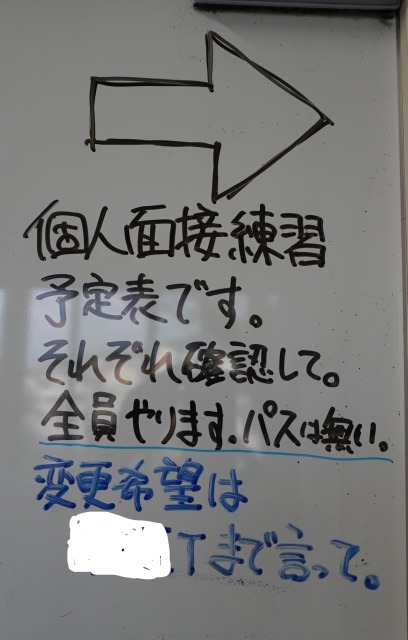 個人面接練習
予定表です。
それぞれ確認して。
全員やります。パスは無い。
変更希望は
Tまで言って。